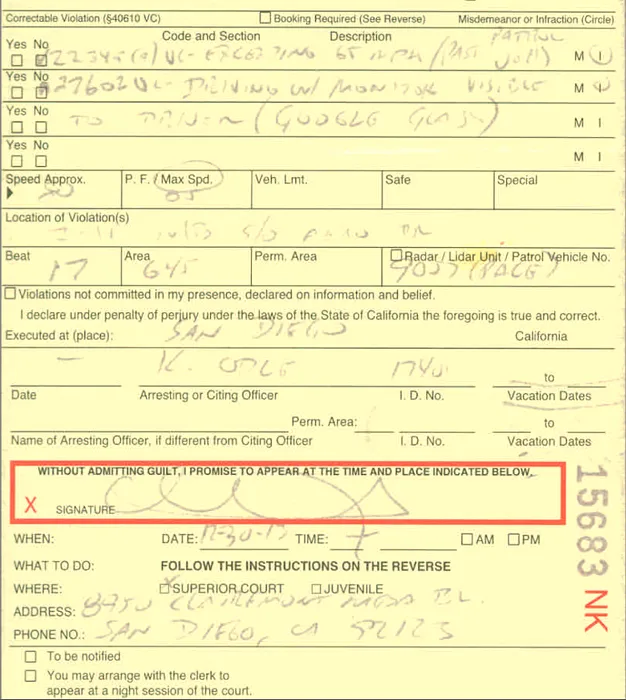 Correctable Violation (§40610 VC) Booking Required (See Reverse) Misdemeanor or Infraction (Circle)
Code and Section Description PATROL
Yes No 22349(a) VC- EXCEEDING 65 MPH (PAST M I
Yes No 27602 VC- DRIVING W/ MONITOR VISIBLE M I
Yes No TO DRIVER (GOOGLE GLASS) M I
Yes No M I
Speed Approx. P. F. / Max Spd. Veh. Lmt. Safe Special
80 65
Location of Violation(s)
I-15 S/O
Beat Area Perm. Area Radar / Lidar Unit / Patrol Vehicle No.
17 645 (PACE)
Violations not committed in my presence, declared on information and belief.
I declare under penalty of perjury under the laws of the State of California the foregoing is true and correct.
Executed at (place): SAN DIEGO California
K. ODLE to
Date Arresting or Citing Officer I. D. No. Vacation Dates
Perm. Area: to
Name of Arresting Officer, if different from Citing Officer I. D. No. Vacation Dates
WITHOUT ADMITTING GUILT, I PROMISE TO APPEAR AT THE TIME AND PLACE INDICATED BELOW.
X SIGNATURE
WHEN: DATE: TIME: AM PM
WHAT TO DO: FOLLOW THE INSTRUCTIONS ON THE REVERSE
WHERE: SUPERIOR COURT JUVENILE
ADDRESS: 8950 CLAIREMONT MESA BL.
PHONE NO.: SAN DIEGO, CA 92123
To be notified
You may arrange with the clerk to
appear at a night session of the court.
15683 NK